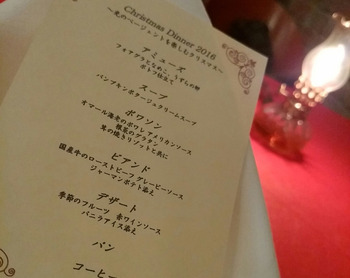 Christmas Dinner 2016
～光のページェントを楽しむクリスマス～
アミューズ
フォアグラとなめこ、うずらの卵
ポトフ仕立て
スープ
パンプキンポタージュクリームスープ
ポワソン
オマール海老のポワレアメリカンソース
根菜のグラタン
茸の焼きリゾットと共に
ビアンド
国産牛のローストビーフ グレービーソース
ジャーマンポテト添え
デザート
季節のフルーツ 赤ワインソース
バニラアイス添え
パン
コーヒー